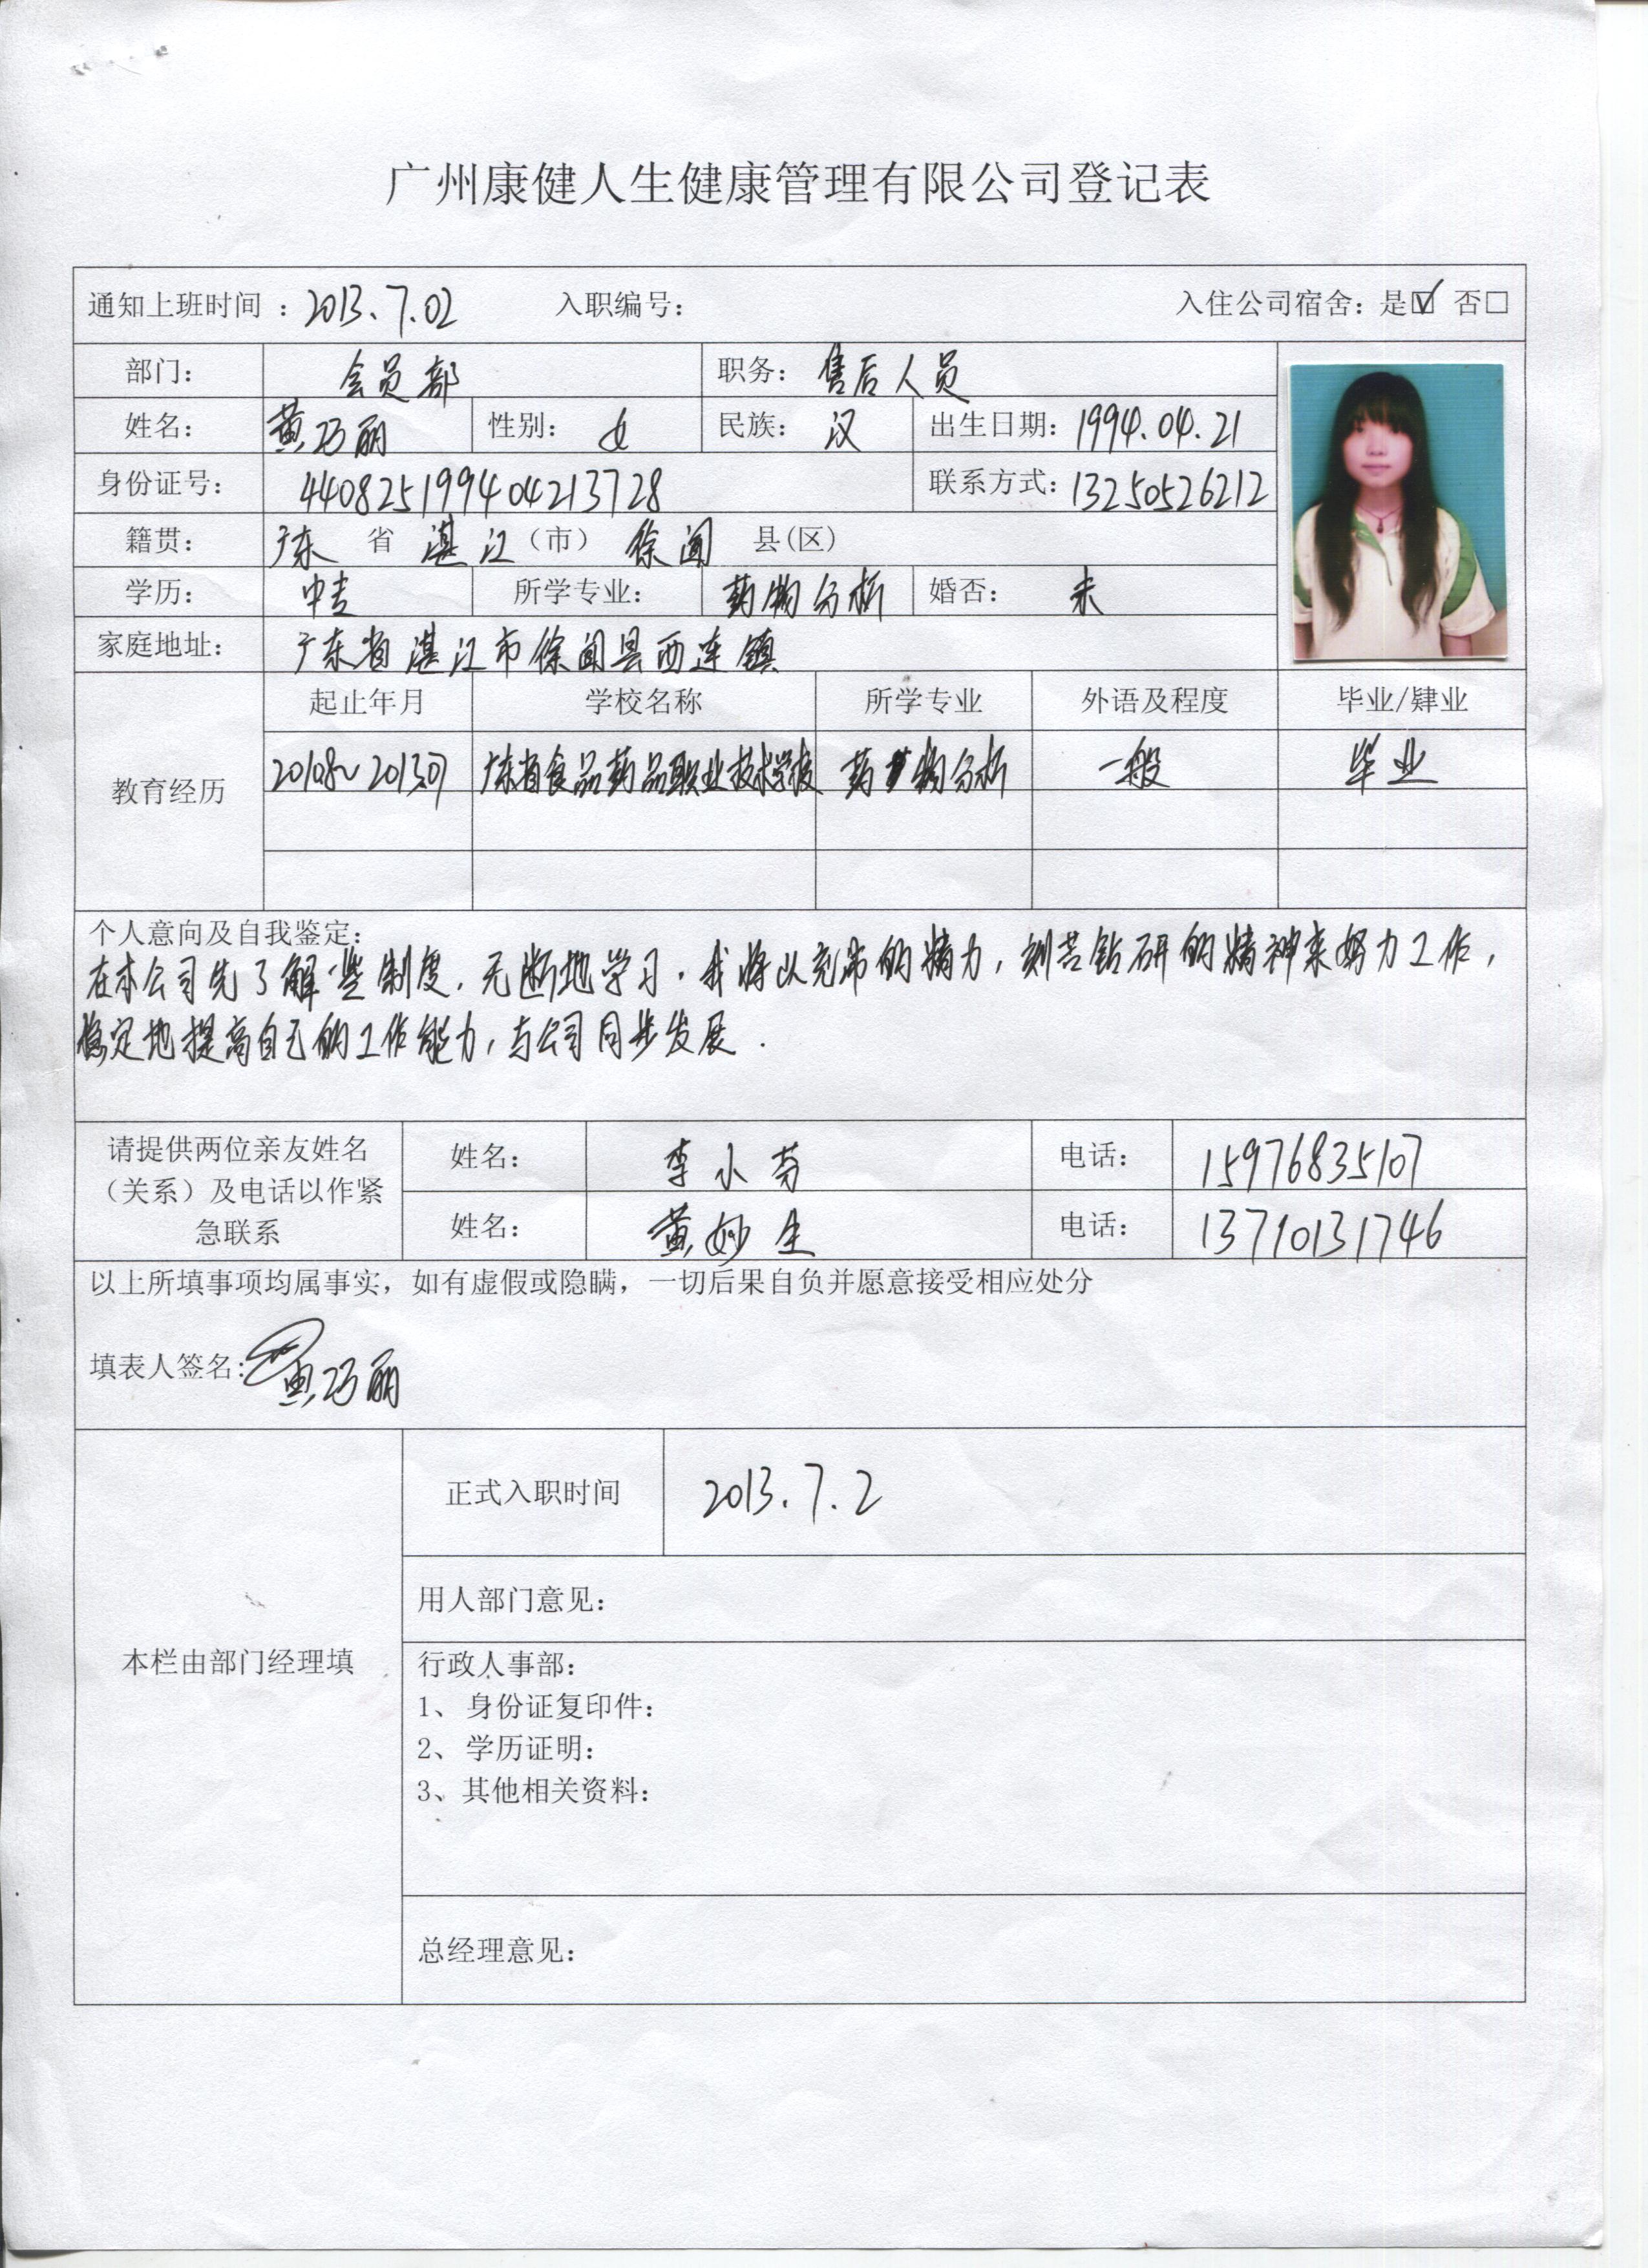 广州康健人生健康管理有限公司登记表
通知上班时间：2013.7.02 入职编号： 入住公司宿舍：是☑ 否□
部门： 会员部 职务：售后人员
姓名： 黄巧丽 性别： 女 民族： 汉 出生日期：1994.04.21
身份证号： 440825199404213728 联系方式：13250526212
籍贯： 广东 省 湛江（市） 徐闻 县(区)
学历： 中专 所学专业： 药物分析 婚否： 未
家庭地址： 广东省湛江市徐闻县西连镇
起止年月 学校名称 所学专业 外语及程度 毕业/肄业
教育经历
20108~201307 广东省食品药品职业技术学校 药物分析 一般 毕业
个人意向及自我鉴定：
在本公司先了解一些制度，无断地学习，我将以充沛的精力，刻苦钻研的精神来努力工作，
稳定地提高自己的工作能力，与公司同步发展．
请提供两位亲友姓名（关系）及电话以作紧急联系
姓名： 李小芳 电话： 15976835107
姓名： 黄妙生 电话： 13710131746
以上所填事项均属事实，如有虚假或隐瞒，一切后果自负并愿意接受相应处分
填表人签名：黄巧丽
本栏由部门经理填
正式入职时间 2013.7.2
用人部门意见：
行政人事部：
1、身份证复印件：
2、学历证明：
3、其他相关资料：
总经理意见：